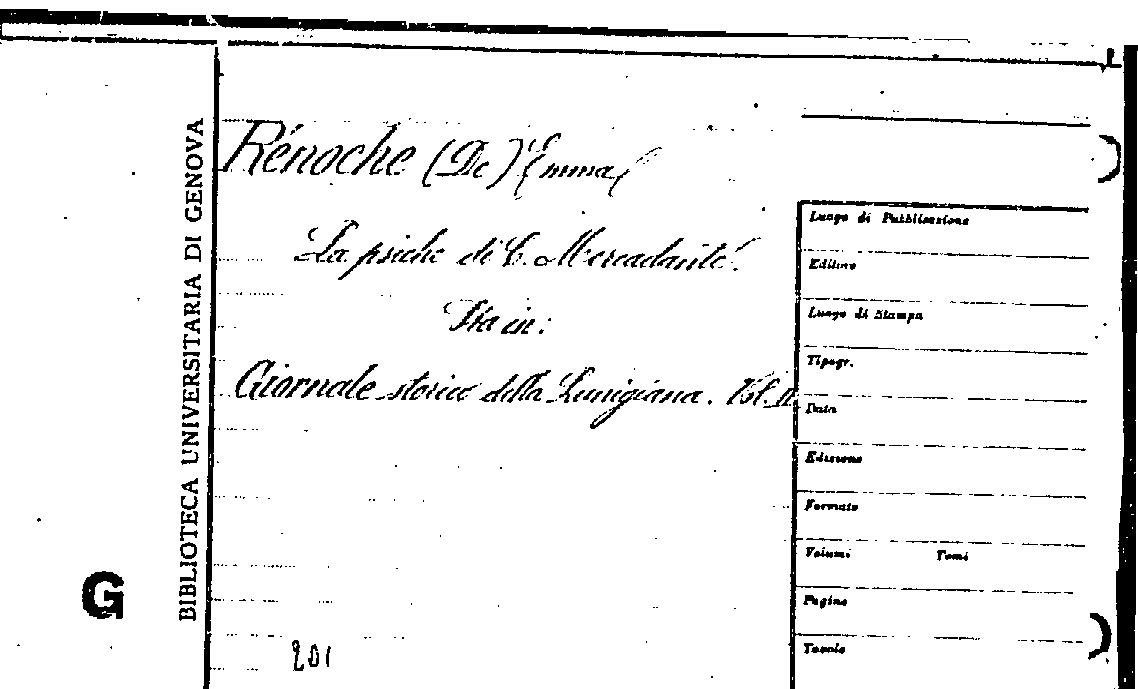 Rénoche (De) Emma
La psiche di C. Mercadante.
Sta in:
Giornale storico della Lunigiana. Vol. II.
201
G
BIBLIOTECA UNIVERSITARIA DI GENOVA
Luogo di Pubblicazione
Editore
Luogo di Stampa
Tipogr.
Data
Edizione
Formato
Volumi Tomi
Pagine
Tavole